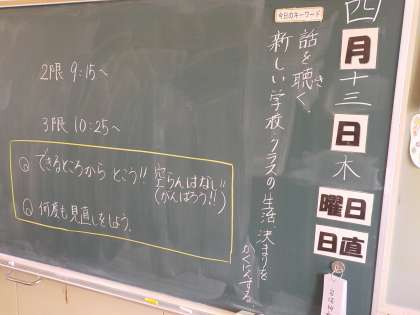 四月十三日 木曜日
日直
今日のキーワード
話を聴く。
き
新しい学校・クラスの生活、決まりを
かくにんする。
2限 9:15〜
3限 10:25〜
できるところから とこう!! 空らんはなし
(がんばろう!!)
何度も見直しをしよう。